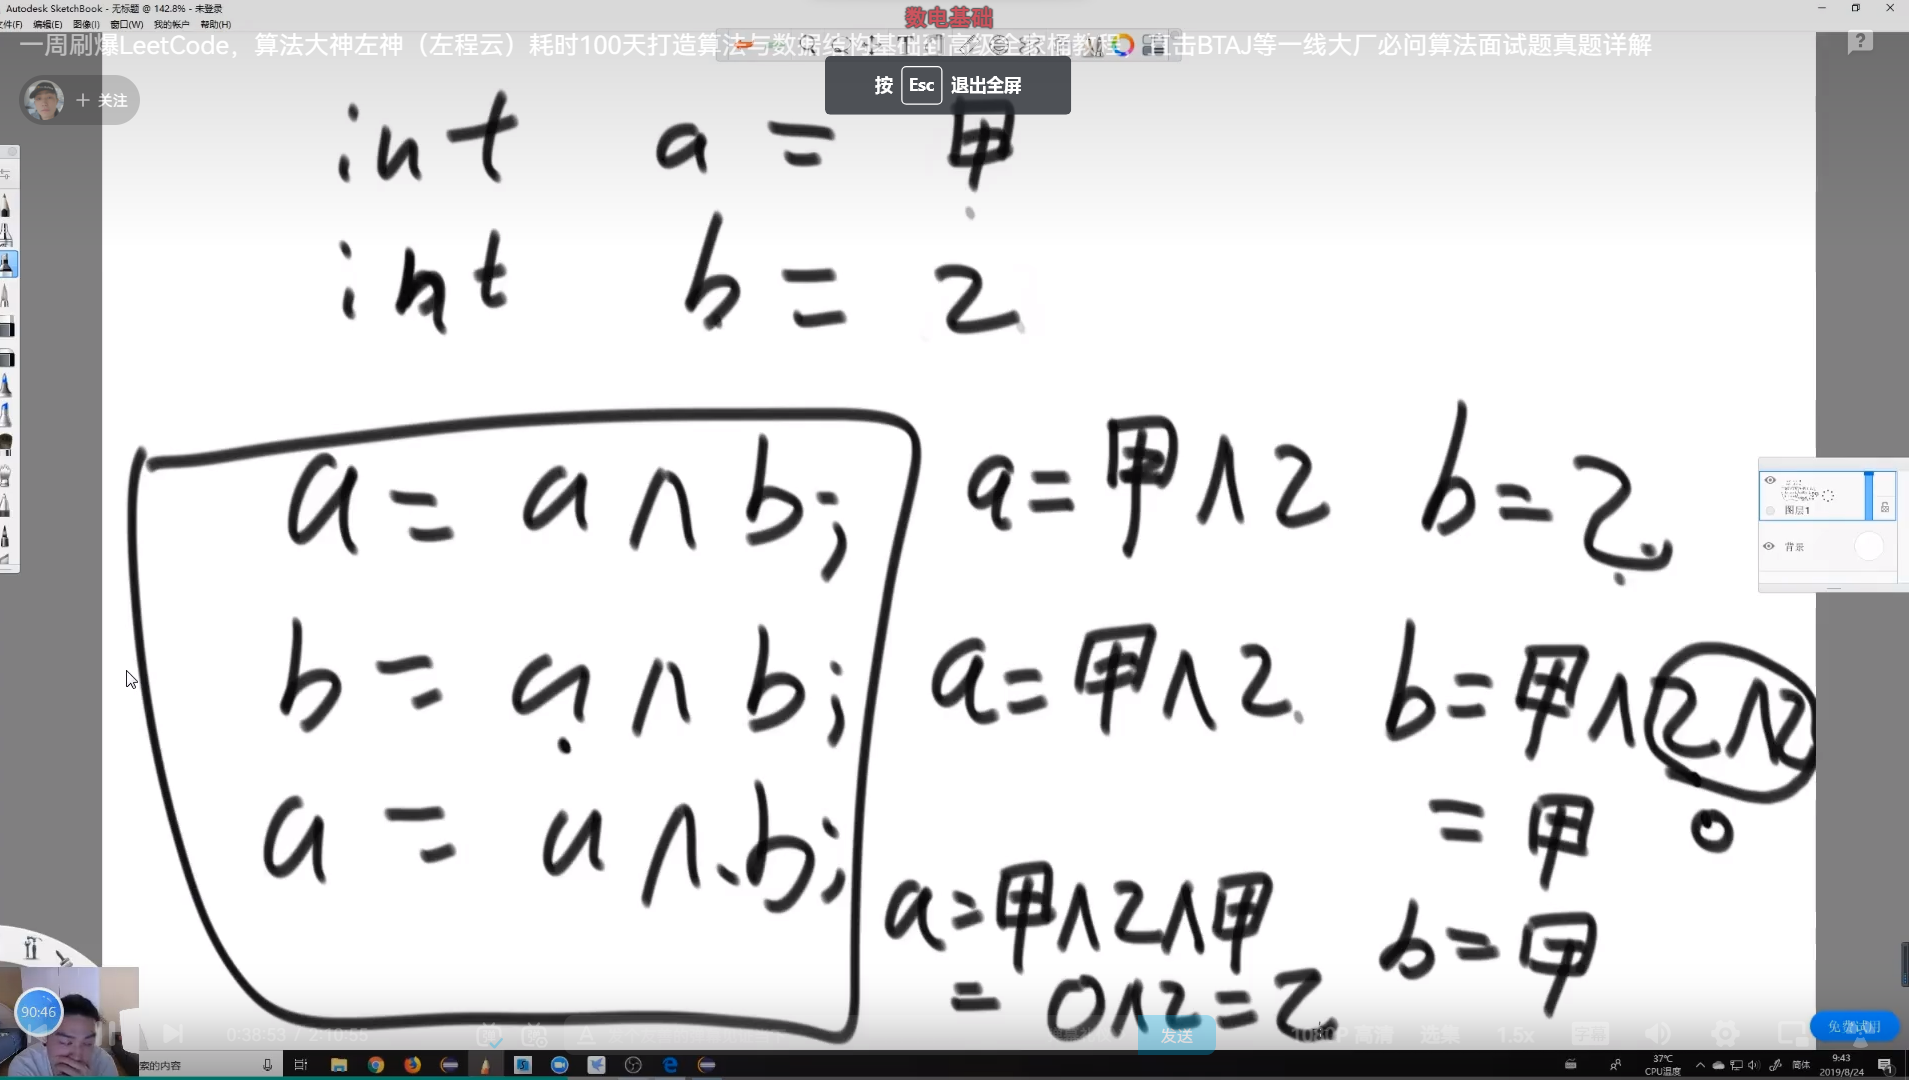 Autodesk SketchBook - 无标题 @ 142.8% - 未登录
文件(F) 编辑(E) 图像(I) 窗口(W) 我的帐户 帮助(H)
数电基础
一周刷爆LeetCode，算法大神左神（左程云）耗时100天打造算法与数据结构基础到高级全家桶教程，直击BTAJ等一线大厂必问算法面试题真题详解
按 Esc 退出全屏
+ 关注
int a = 甲
int b = 乙
a = a ∧ b;
a = 甲∧乙 b = 乙
b = a ∧ b;
a = 甲∧乙 b = 甲∧乙∧乙
0
= 甲
a = a ∧ b;
a = 甲∧乙∧甲 b = 甲
= 0∧乙 = 乙
图层1
背景
90:46
0:38:53 / 2:10:55
发送
1080P 高清
选集
1.5x
字幕
免费试用
索的内容
37℃
CPU温度
简体
9:43
2019/8/24